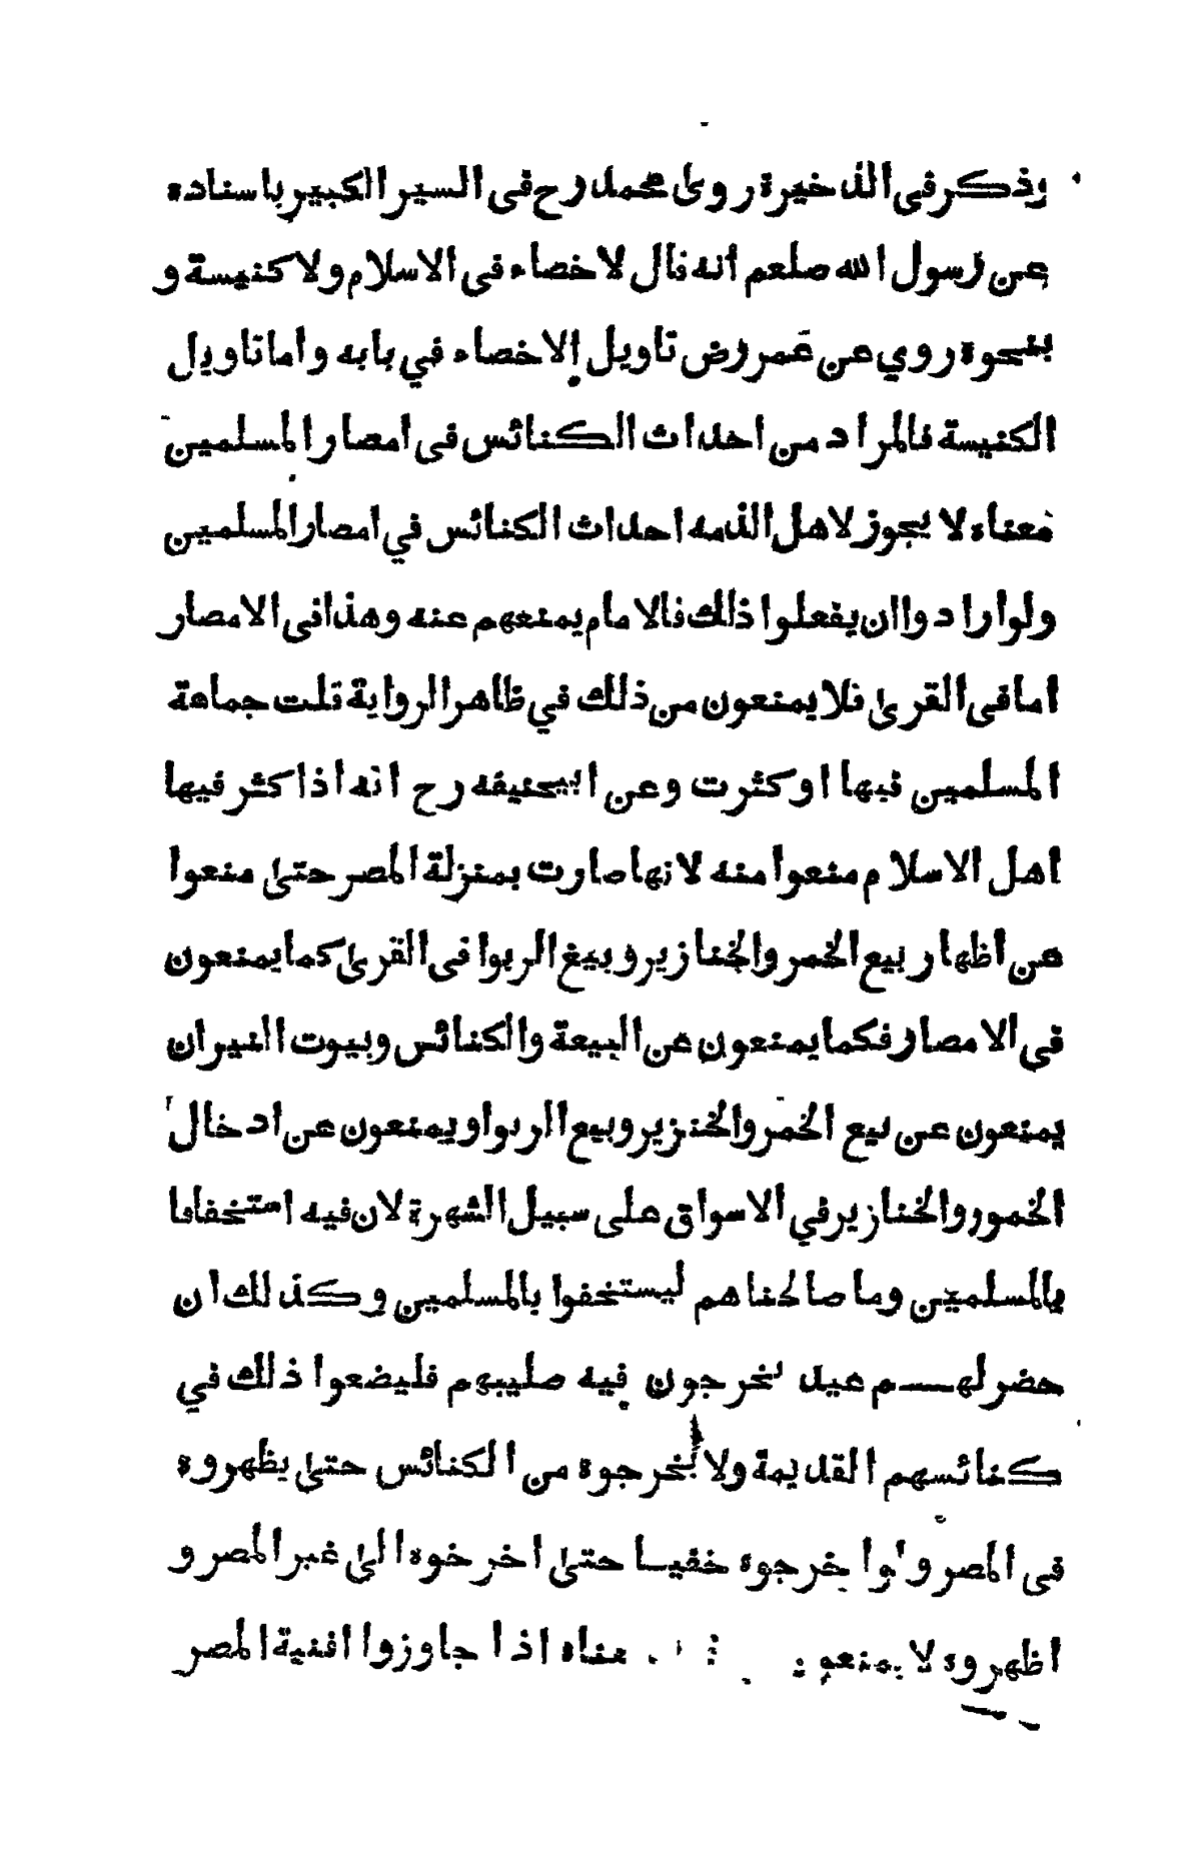 وذكر فى الذخيرة روى محمد رح فى السير الكبير باسناده
عن رسول الله صلعم انه قال لا خصاء فى الاسلام ولا كنيسة و
بنحوه روي عن عمر رض تاويل الاخصاء في بابه واما تاويل
الكنيسة فالمراد من احداث الكنائس فى امصار المسلمين
معناه لا يجوز لاهل الذمه احداث الكنائس في امصار المسلمين
ولو ارادوا ان يفعلوا ذلك فالامام يمنعهم عنه وهذا فى الامصار
اما فى القرى فلا يمنعون من ذلك في ظاهر الرواية قلت جماعة
المسلمين فيها او كثرت وعن ابيحنيفه رح انه اذا كثر فيها
اهل الاسلام منعوا منه لانها صارت بمنزلة المصر حتى منعوا
عن اظهار بيع الخمر والخنازير وبيع الربوا فى القرى كما يمنعون
في الامصار فكما يمنعون عن البيعة والكنائس وبيوت النيران
يمنعون عن بيع الخمر والخنزير وبيع الربوا ويمنعون عن ادخال
الخمور والخنازير في الاسواق على سبيل الشهرة لان فيه استخفافا
بالمسلمين وما صالحناهم ليستخفوا بالمسلمين وكذلك ان
حضر لهم عيد يخرجون فيه صليبهم فليضعوا ذلك في
كنائسهم القديمة ولا يخرجوه من الكنائس حتى يظهروه
فى المصر ولو اخرجوه خفيا حتى اخرخوه الى غير المصر و
اظهروه لا يمنعون معناه اذا جاوزوا افنية المصر